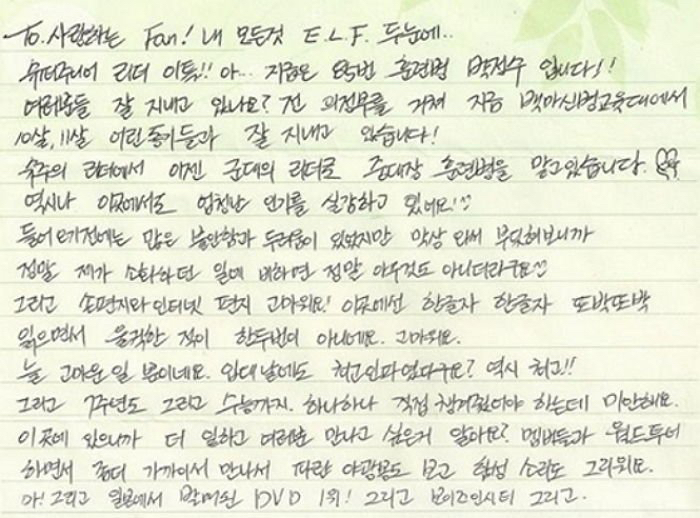 To. 사랑하는 Fan! 내 모든것 E.L.F. 두눈에..
슈퍼주니어 리더 이특!! 아... 지금은 85번 훈련병 박정수 입니다!!
여러분들 잘 지내고 있나요? 전 의정부를 거쳐 지금 백마신병교육대에서
10살, 11살 어린 동기들과 잘 지내고 있습니다!
슈주의 리더에서 이젠 군대의 리더로 중대장 훈련병을 맡고있습니다.
역시나 이곳에서도 엄청난 인기를 실감하고 있네요!
들어오기전에는 많은 불안함과 두려움이 있었지만 막상 와서 부딪혀보니까
정말 제가 소화하던 일에 비하면 정말 아무것도 아니더라구요
그리고 손편지와 인터넷 편지 고마워요! 이곳에선 한글자 한글자 또박또박
읽으면서 울컥한 적이 한두번이 아니에요. 고마워요.
늘 고마운일 뿐이네요. 입대날에도 최고인파였다구요? 역시 최고!!
그리고 7주년도 그리고 수능까지. 하나하나 직접 챙겨줬어야 하는데 미안해요.
이곳에 있으니까 더 일하고 여러분 만나고 싶은거 알아요? 멤버들과 월드투어
하면서 좀더 가까이서 만나서 파란 야광봉도 보고 함성 소리도 그리워요.
아! 그리고 일본에서 발매된 DVD 1위! 그리고 보이즈인시티 그리고.